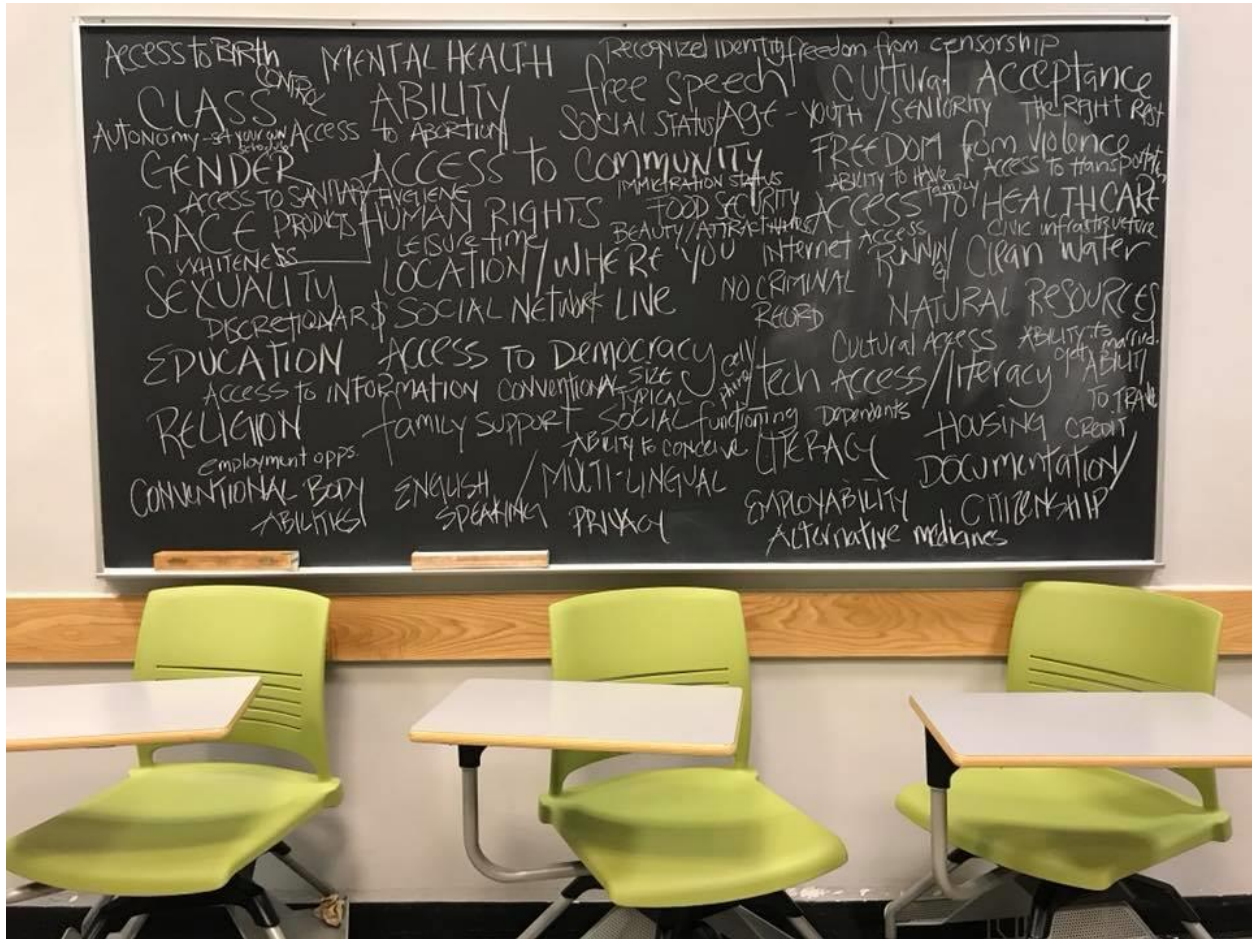 Access to Birth Control
MENTAL HEALTH
Recognized Identity
freedom from censorship
CLASS
ABILITY
free speech
Cultural Acceptance
AUTONOMY - set your own schedule
Access to ABORTION
SOCIAL STATUS/AGE - YOUTH / SENIORITY
THE RIGHT Rest
GENDER
ACCESS TO COMMUNITY
FREEDOM from violence
ACCESS TO SANITARY HYGIENE PRODUCTS
IMMIGRATION STATUS
ABILITY TO HAVE family
Access to transportation
RACE
HUMAN RIGHTS
FOOD SECURITY
ACCESS TO HEALTHCARE
WHITENESS
Leisure time
BEAUTY/ATTRACTIVENESS
Internet Access
Civic infrastructure
SEXUALITY
LOCATION/WHERE YOU LIVE
RUNNING/Clean water
DISCRETIONARY $
SOCIAL NETWORK
NO CRIMINAL RECORD
NATURAL RESOURCES
EDUCATION
ACCESS TO DEMOCRACY
Cultural Access
ABILITY to get married.
ACCESS TO INFORMATION
CONVENTIONAL SIZE
TYPICAL SOCIAL functioning
cell phone
tech Access/literacy
ABILITY TO TRAVEL
RELIGION
family support
Dependents
HOUSING
CREDIT
employment opps.
ABILITY to CONCEIVE
LITERACY
DOCUMENTATION/CITIZENSHIP
CONVENTIONAL BODY ABILITIES
ENGLISH SPEAKING / MULTI-LINGUAL
PRIVACY
EMPLOYABILITY
Alternative medicines